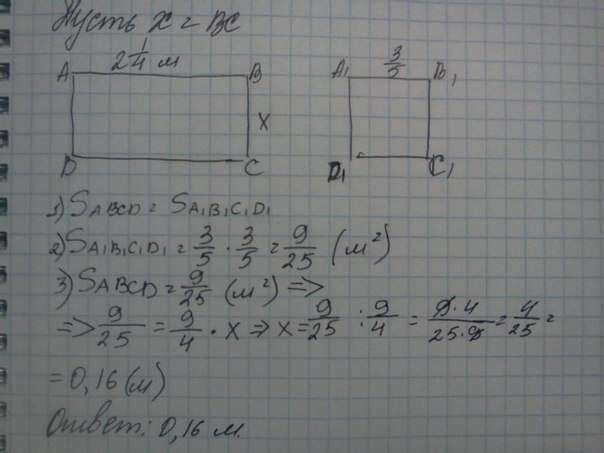 Пусть x = BC
2 1/4 м
A B
x
D C
3/5
A₁ B₁
D₁ C₁
1) SABCD = SA₁B₁C₁D₁
2) SA₁B₁C₁D₁ = 3/5 · 3/5 = 9/25 (м²)
3) SABCD = 9/25 (м²) =>
=> 9/25 = 9/4 · x => x = 9/25 : 9/4 = 9·4/25·9 = 4/25 =
= 0,16 (м)
Ответ: 0,16 м.